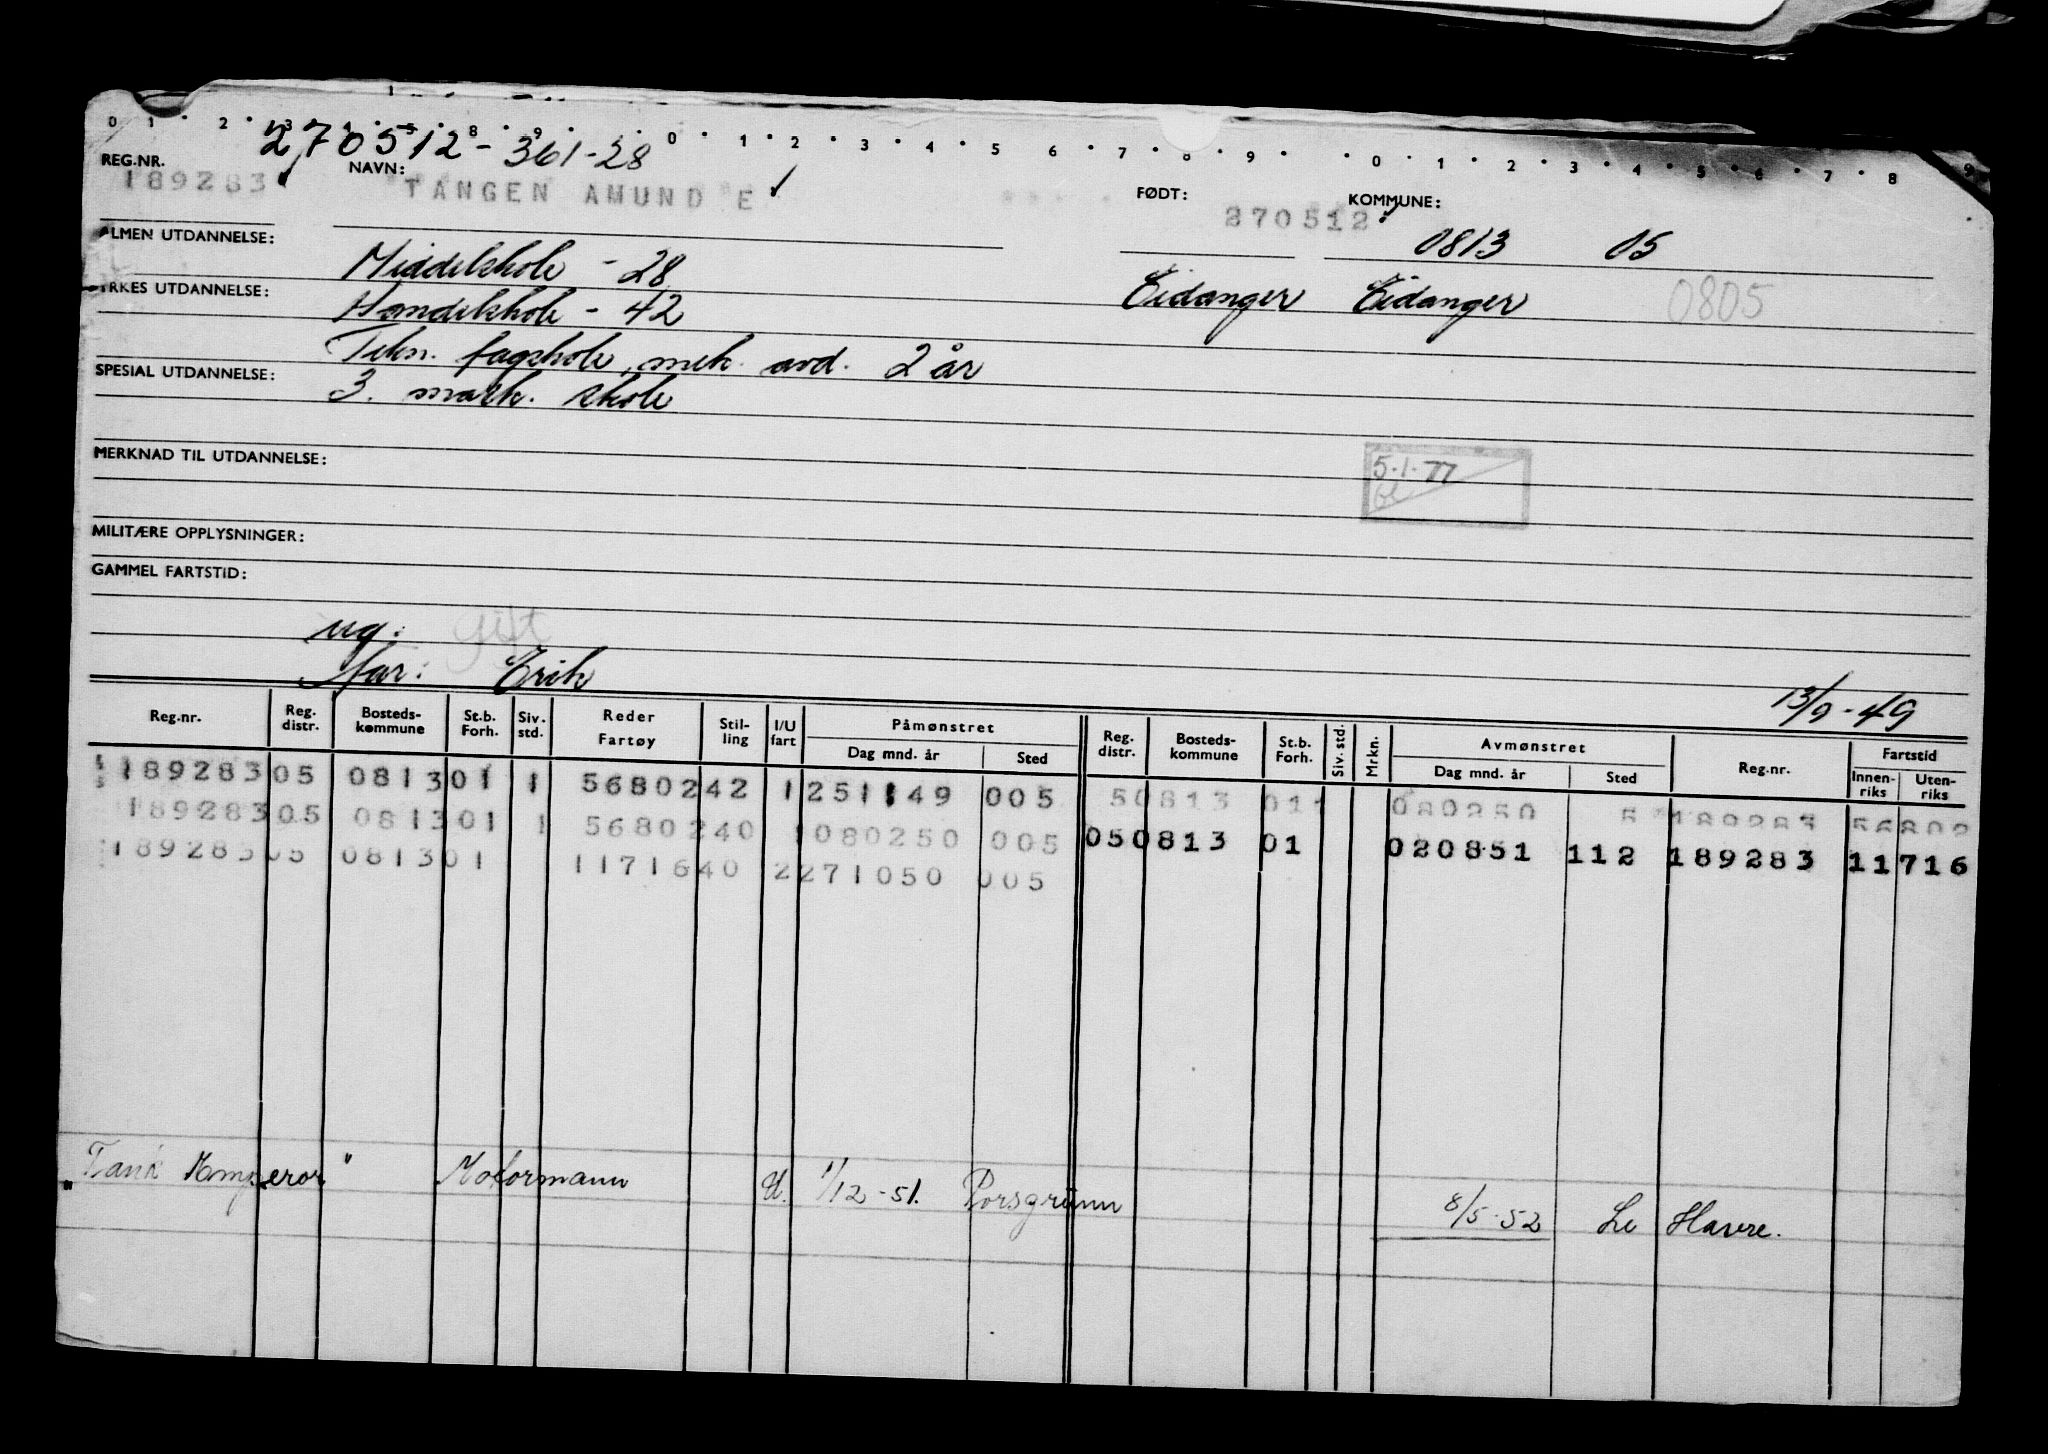 270512-361-28
REG.NR. 189283 NAVN: TANGEN AMUND E FØDT: 270512 KOMMUNE: 0813 05
ALMEN UTDANNELSE: Middelskole - 28 Eidanger Eidanger 0805
YRKES UTDANNELSE: Handelskole - 42
Tekn. fagskole, mek. avd. 2 år
SPESIAL UTDANNELSE: 3. mask. skole
MERKNAD TIL UTDANNELSE:
5.1.77
MILITÆRE OPPLYSNINGER:
GAMMEL FARTSTID:
ug. gift
Far: Erik 13/9-49
Reg.nr. Reg. distr. Bosteds-kommune St.b. Forh. Siv. std. Reder Fartøy Stil-ling I/U fart Påmønstret Dag mnd. år Sted Reg. distr. Bosteds-kommune St.b. Forh. Siv. std. Mrkn. Avmønstret Dag mnd. år Sted Reg.nr. Fartstid Innen-riks Uten-riks
189283 05 0813 01 1 56802 42 1 251149 005 5 0813 011 080250 5 189283 56802
189283 05 0813 01 1 56802 40 1 080250 005 05 0813 01 020851 112 189283 11716
189283 05 0813 01 11716 40 2 271050 005
"Tank Emperor" Motormann U. 1/12-51. Porsgrunn 8/5-52 Le Havre.